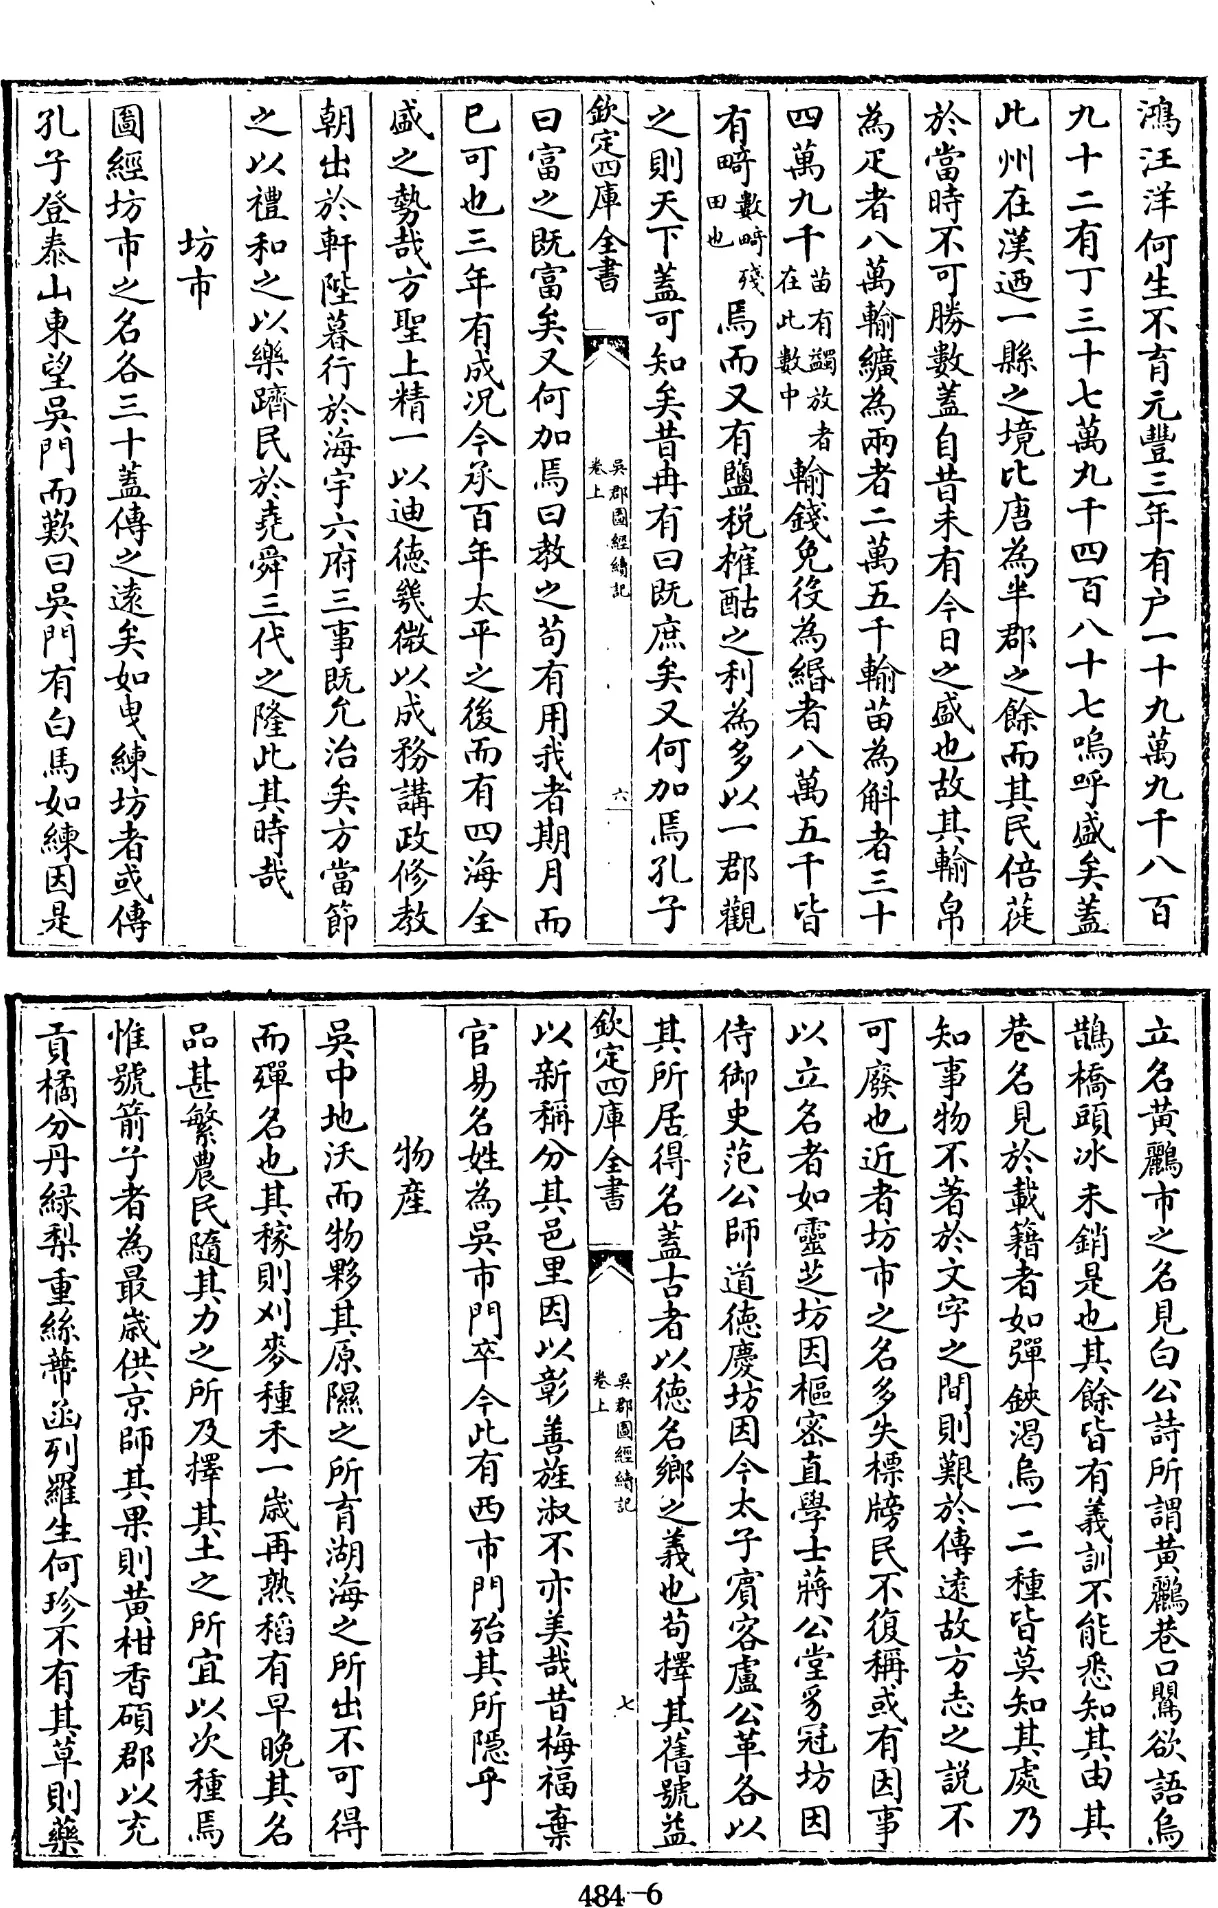 鴻汪洋何生不育元豐三年有户一十九萬九千八百
九十二有丁三十七萬九千四百八十七嗚呼盛矣蓋
此州在漢迺一縣之境比唐為半郡之餘而其民倍蓰
於當時不可勝數蓋自昔未有今日之盛也故其輸帛
為疋者八萬輸纊為兩者二萬五千輸苗為斛者三十
四萬九千苗有蠲放者在此數中輸錢免役為緡者八萬五千皆
有畸數畸殘田也焉而又有鹽税榷酤之利為多以一郡觀
之則天下蓋可知矣昔冉有曰既庶矣又何加焉孔子
欽定四庫全書
吳郡圖經續記
卷上
六
曰富之既富矣又何加焉曰教之苟有用我者期月而
已可也三年有成况今承百年太平之後而有四海全
盛之勢哉方聖上精一以迪德幾微以成務講政修教
朝出於軒陛暮行於海宇六府三事既允治矣方當節
之以禮和之以樂躋民於堯舜三代之隆此其時哉
坊市
圖經坊市之名各三十蓋傳之遠矣如曳練坊者或傳
孔子登泰山東望吳門而歎曰吳門有白馬如練因是
立名黄鸝市之名見白公詩所謂黄鸝巷口鶯欲語烏
鵲橋頭冰未銷是也其餘皆有義訓不能悉知其由其
巷名見於載籍者如彈鋏渴烏一二種皆莫知其處乃
知事物不著於文字之間則艱於傳遠故方志之説不
可廢也近者坊市之名多失標牓民不復稱或有因事
以立名者如靈芝坊因樞密直學士蔣公堂豸冠坊因
侍御史范公師道德慶坊因今太子賓客盧公革各以
其所居得名蓋古者以德名鄉之義也苟擇其舊號益
欽定四庫全書
吳郡圖經續記
卷上
七
以新稱分其邑里因以彰善旌淑不亦美哉昔梅福棄
官易名姓為吳市門卒今此有西市門殆其所隠乎
物産
吳中地沃而物夥其原隰之所育湖海之所出不可得
而殫名也其稼則刈麥種禾一歲再熟稻有早晚其名
品甚繁農民隨其力之所及擇其土之所宜以次種焉
惟號箭子者為最歲供京師其果則黄柑香碩郡以充
貢橘分丹緑梨重絲蔕函列羅生何珍不有其草則藥
484-6